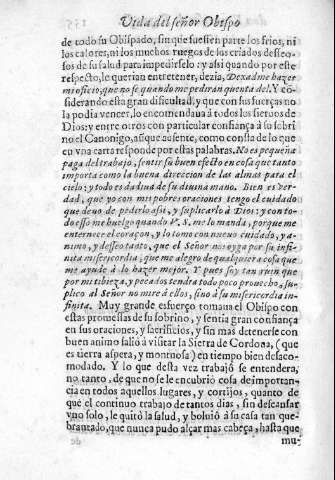 Vida del señor Obispo
de todo su Obispado, sin que fuessen parte los frios, ni
los calores, ni los muchos ruegos de los criados deseo-
sos de su salud para impedirselo: y assi quando por este
respecto, le querian entretener, dezia, Dexadme hazer
mi oficio, que no se quando me pediran quenta del. Y co-
siderando esta gran dificultad, y que con sus fuerças no
la podia vencer, lo encomendaua à todos los sieruos de
Dios: y entre otros con particular confiança à su sobri
no el Canonigo, assi que ausente, como consta de lo que
en vna carta responde por estas palabras. No es pequeña
paga del trabajo, sentir su buen efecto en cosa que tanto
importa como la buena direccion de las almas para el
cielo; y todo es dadiua de su diuina mano. Bien es ver-
dad, que yo con mis pobres oraciones tengo el cuidado
que deuo de pedirlo assi, y suplicarlo à Dios: y con to-
do esso me huelgo quando V. S. me lo manda, porque me
enternece el coraçon, y lo tomo con nueuo cuidado, y a-
nimo, y desseo tanto, que el Señor nos oyga por su infi-
nita misericordia, que me alegro de qualquiera cosa que
me ayude à lo hazer mejor. Y pues soy tan ruin que
por mi tibieza, y pecados tendra todo poco prouecho, su-
plico al Señor no mire à ellos, sino à su misericordia in-
finita. Muy grande esfuerço tomaua el Obispo con
estas promessas de su sobrino, y sentia gran confiança
en sus oraciones, y sacrificios, y sin mas detenerse con
buen animo salió à visitar la Sierra de Cordoua, (que
es tierra aspera, y montuosa) en tiempo bien desaco-
modado. Y lo que desta vez trabajó se entenderà,
no tanto, de que no se le encubrió cosa de importan-
cia en todos aquellos lugares, y cortijos, quanto de
que el continuo trabajo de tantos dias, sin descansar
vno solo, le quitó la salud, y boluió à su casa tan que-
brantado, que nunca pudo alçar mas cabeça, hasta que
mu-